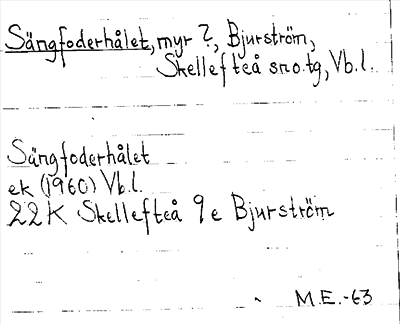 Sängfoderhålet, myr ?, Bjurström,
Skellefteå sno.tg, Vb.l.
Sängfoderhålet
ek (1960) Vb.l.
22K Skellefteå 9e Bjurström
M.E.-63